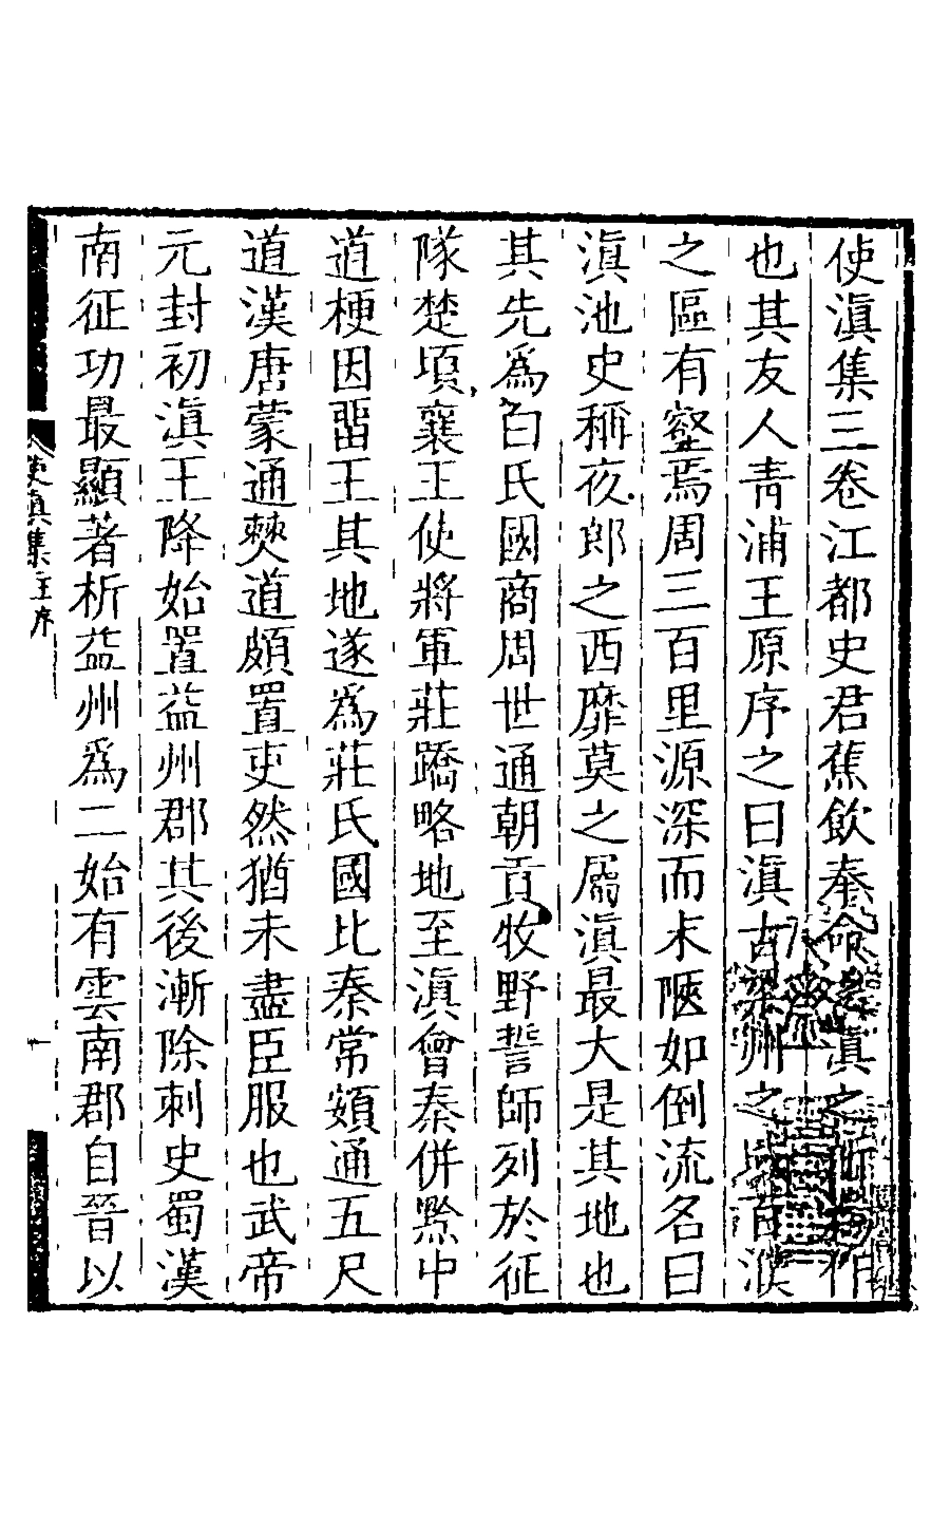 使滇集三卷江都史君蕉飲奉命
滇之所作
也其友人青浦王原序之曰滇古梁州之
百濮
之區有壑焉周三百里源深而末陿如倒流名曰
滇池史稱夜郎之西靡莫之屬滇最大是其地也
其先爲白氏國商周世通朝貢牧野誓師列於征
隊楚頃襄王使將軍莊蹻略地至滇會秦併黔中
道梗因畱王其地遂爲莊氏國比秦常頞通五尺
道漢唐蒙通僰道頗置吏然猶未盡臣服也武帝
元封初滇王降始置益州郡其後漸除刺史蜀漢
南征功最顯著析益州爲二始有雲南郡自晉以
使滇集
王序
一